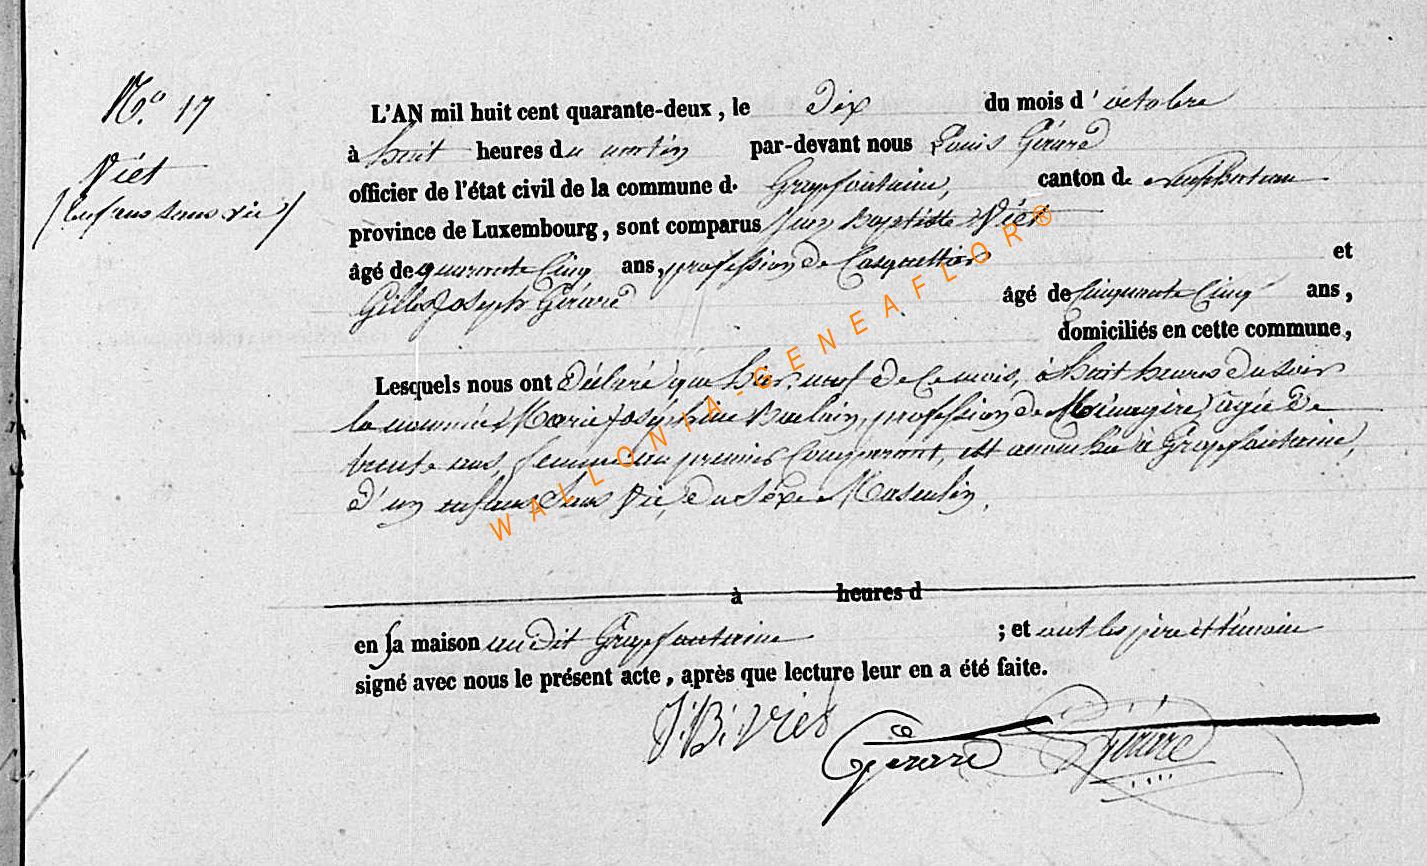 N.o 17
Viet
(enfant sans vie)
L'AN mil huit cent quarante-deux, le Dix du mois d'octobre
à huit heures du matin par-devant nous Louis Gérard
officier de l'état civil de la commune d. Grapfontaine, canton de neufchateau
province de Luxembourg, sont comparus Jean Baptiste Viet
âgé de quarante Cinq ans, profession de et
Gilles Joseph Gérard âgé de Cinquante Cinq ans,
domiciliés en cette commune,
Lesquels nous ont Déclaré que hier neuf de ce mois, à huit heures du soir
la nommée Marie Josephine profession de Ménagère, agée de
trente ans, femme au premier Comparant, est accouchée à Grapfontaine,
d'un enfant Sans Vie, du Séxe Masculin.
à heures d
en sa maison au dit Grapfontaine ; et ont les père et témoin
signé avec nous le présent acte, après que lecture leur en a été faite.
J. B. Viet
Gérard Gérard
WALLONIA-GENEAFLOR®